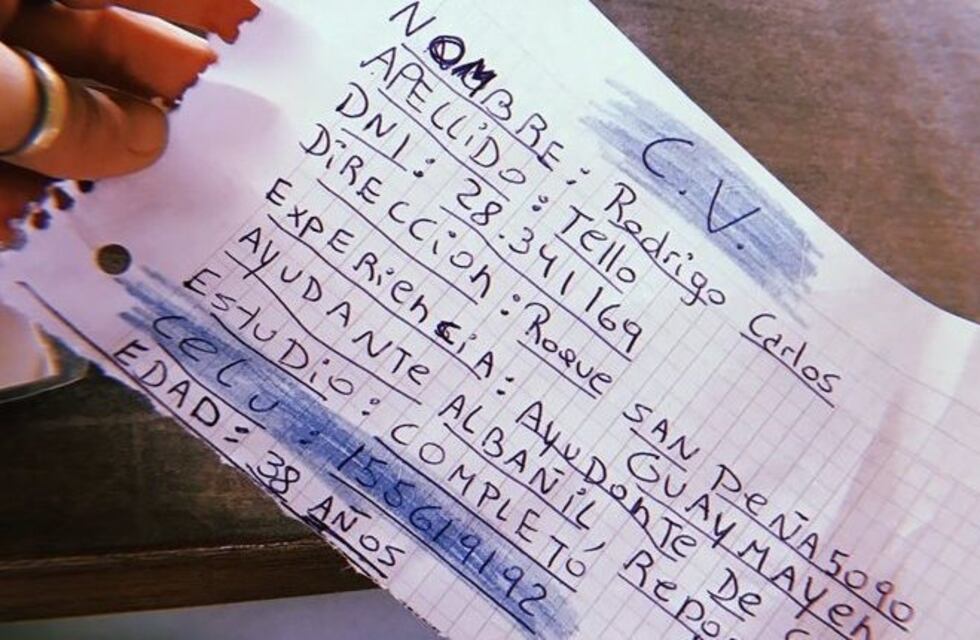 C.V.
NOMBRE: Rodrigo Carlos
APELLIDO: Tello
DNI: 28.341169
DIRECCION: Roque SAN PEÑA 5090
GUAYMAYEN
EXPERIENCIA: AYUDONTE DE
AYUDANTE ALBAÑIL REPO
ESTUDIO: COMPLETO
CELU: 155619192
EDAD: 38 AÑOS